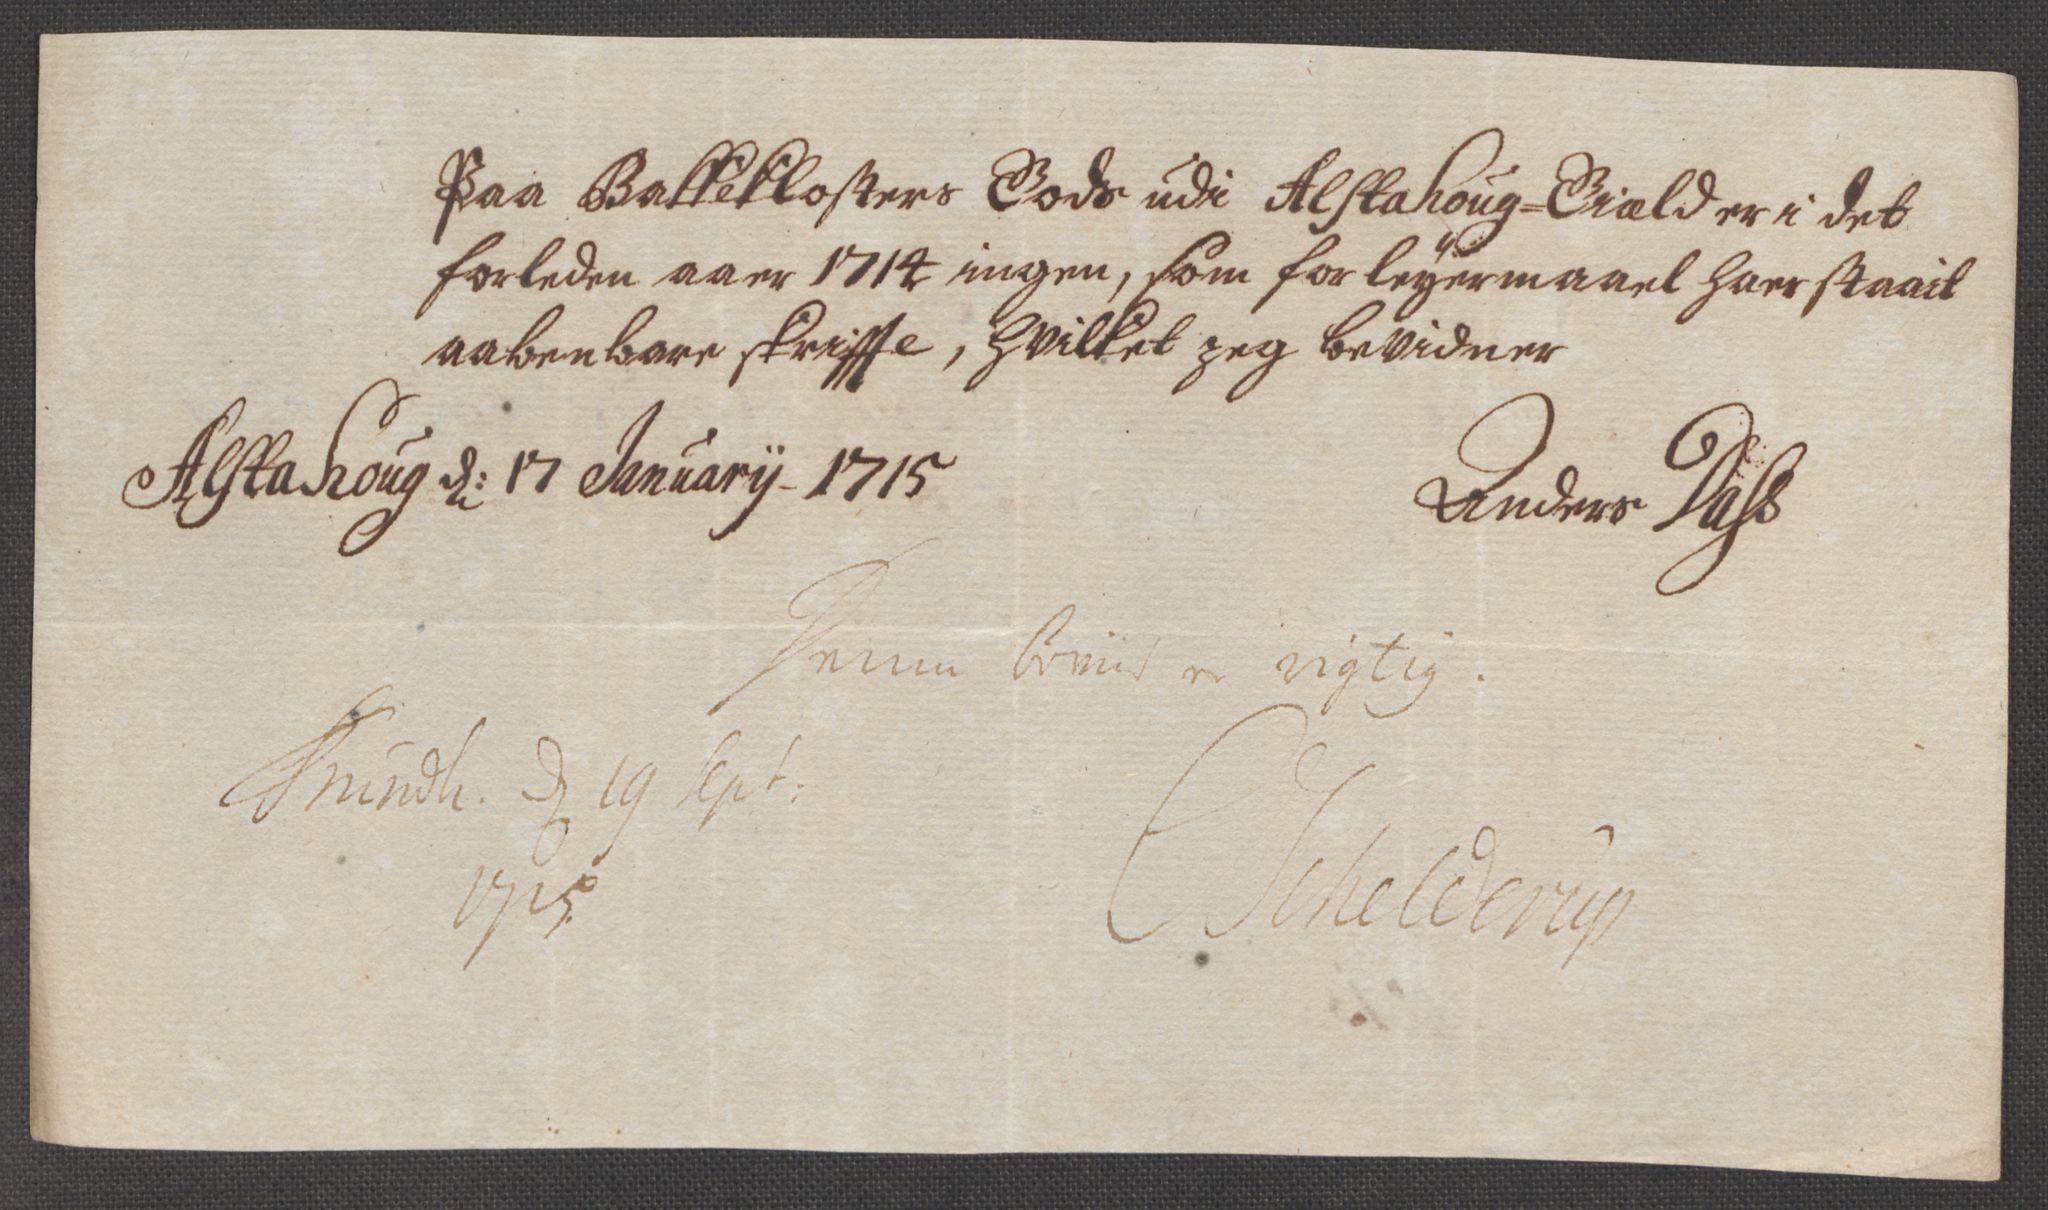 Paa Bakkeklosters Gods udi Alstahoug=Giæld er i det
forleden aaer 1714 ingen, som for leÿermaael haer staait
aabenbare skriffte, hvilket jeg bevidner
Alstahoug d: 17 Januarÿ 1715
Anders Dass
Denne beviis er rigtig.
Trundh. d 19 Sept:
1715
CSchelderup